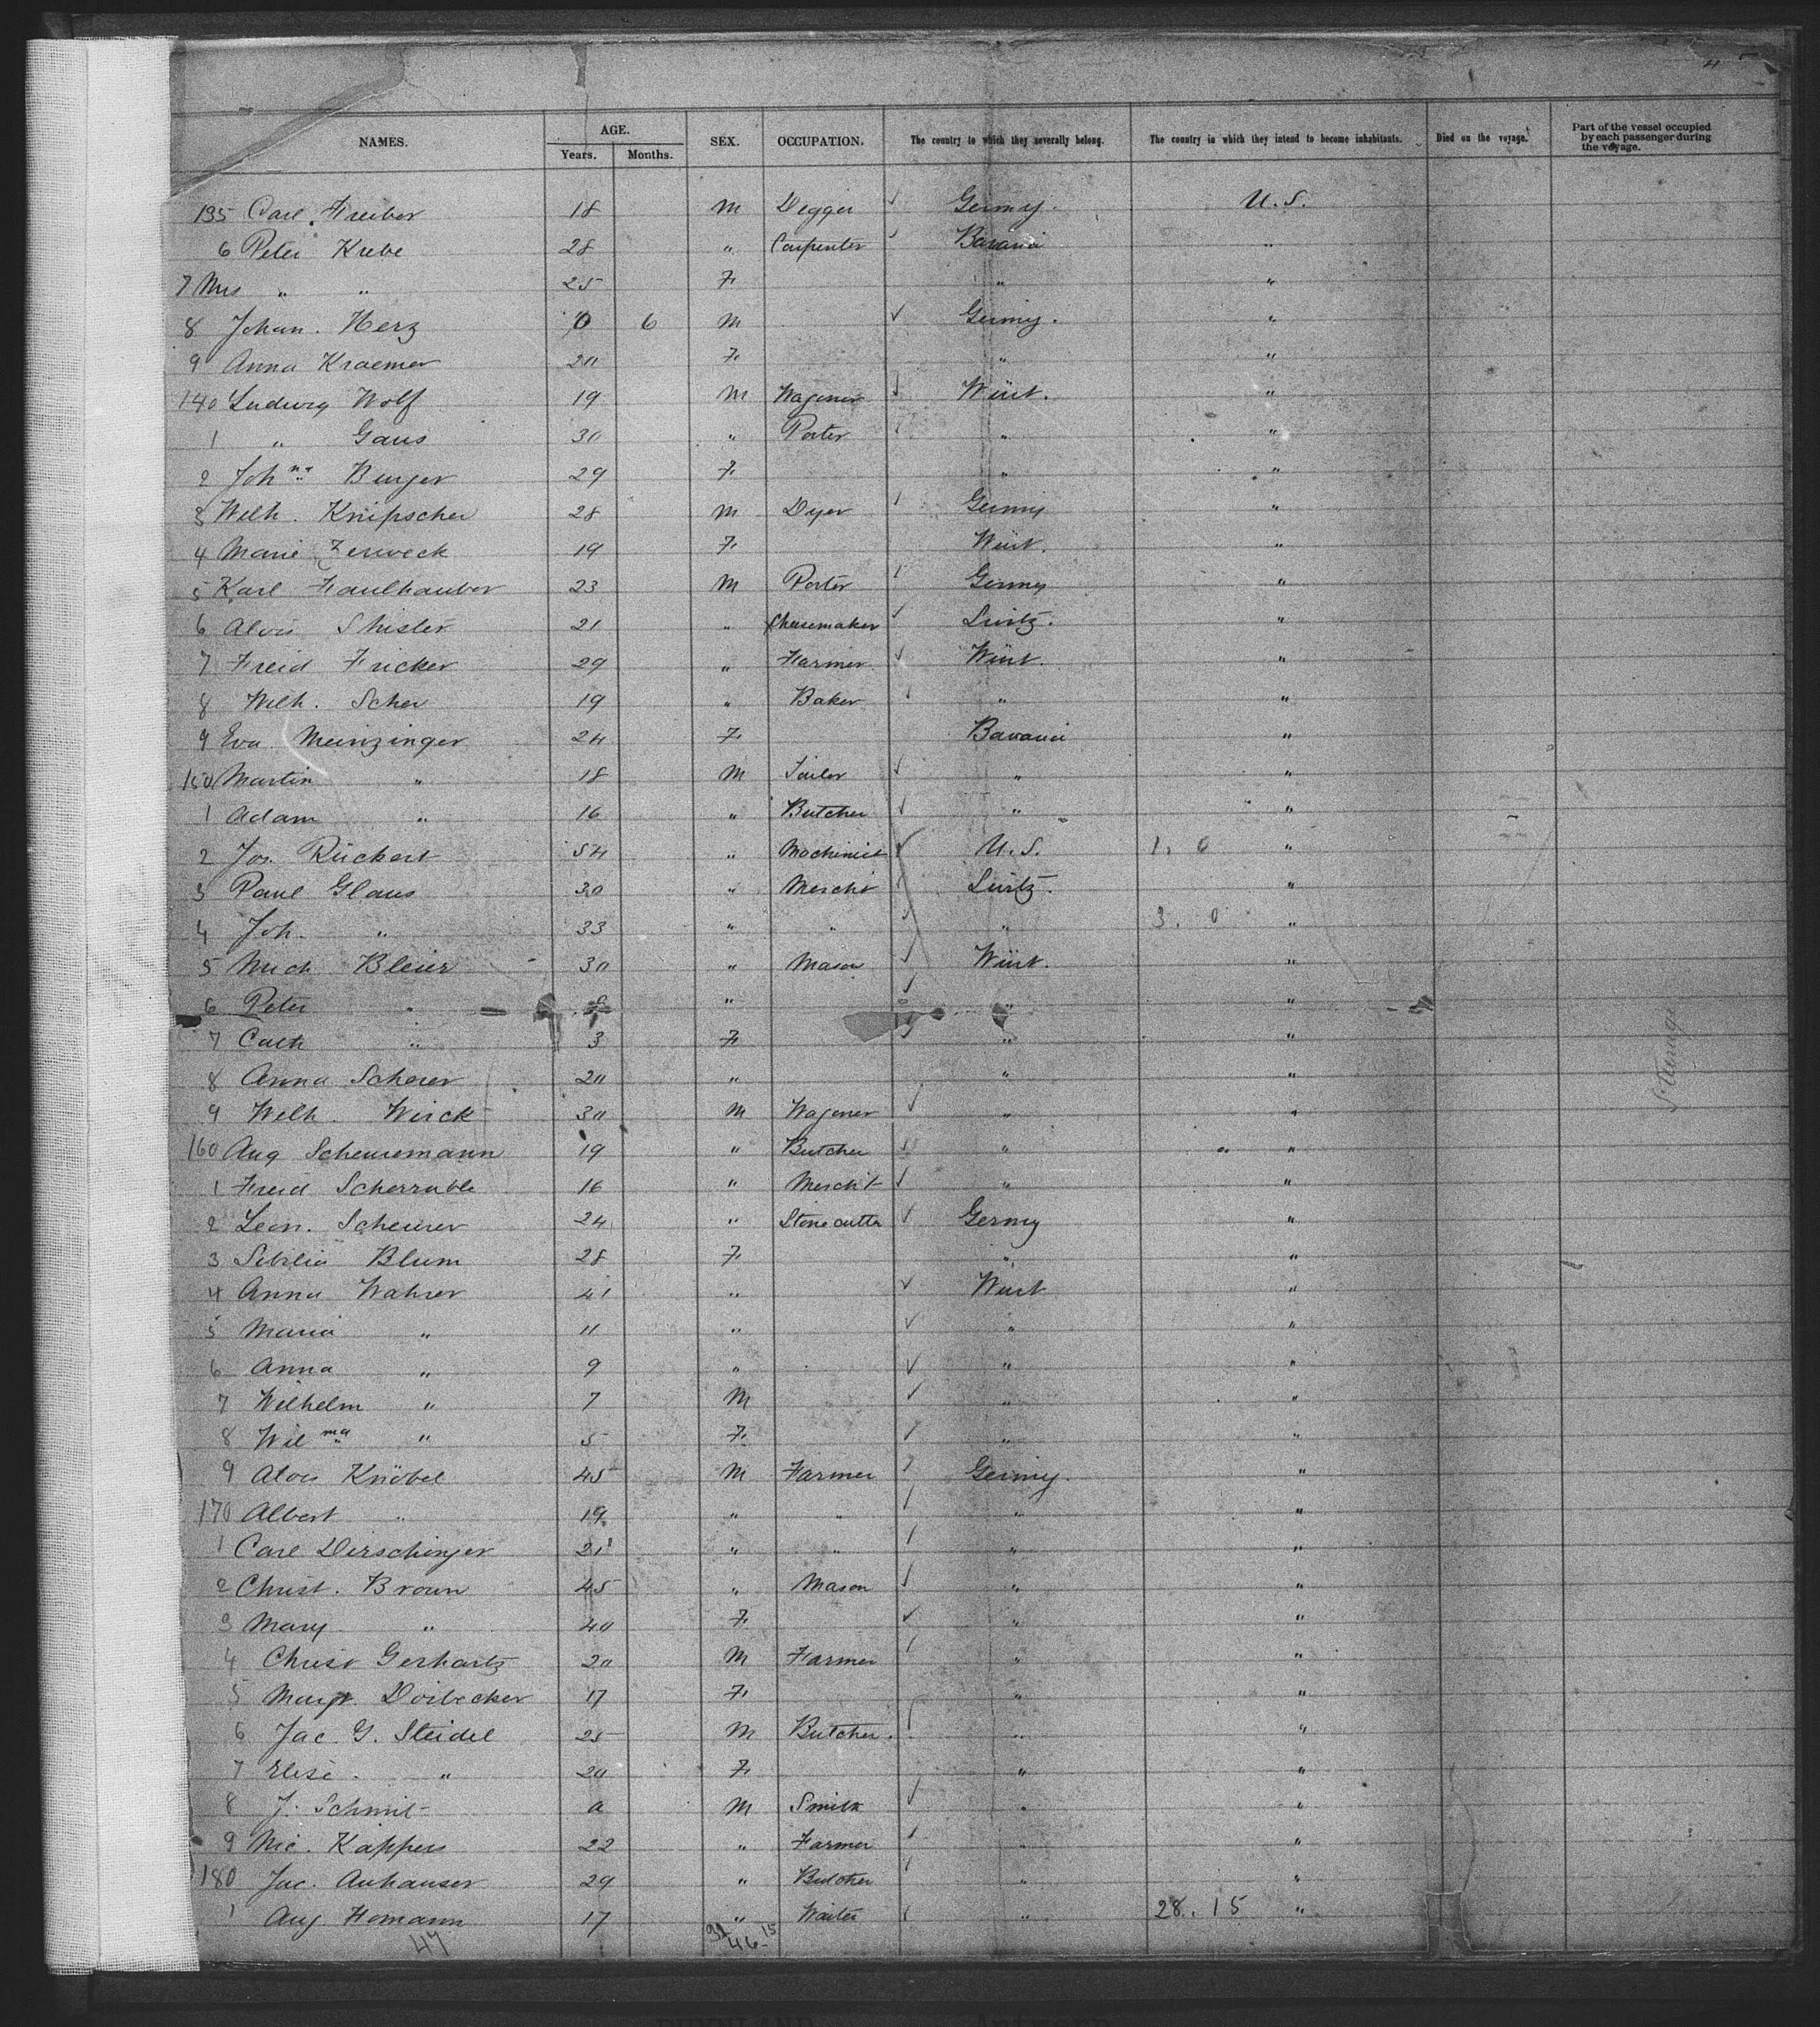 NAMES. AGE. Years. Months. SEX. OCCUPATION. The country to which they severally belong. The country in which they intend to become inhabitants. Died on the voyage. Part of the vessel occupied by each passenger during the voyage.
135 Carl Freiber 18 M Degger ✓ Germy. U.S.
6 Peter Krebe 28 " Carpenter ✓ Bavaria "
7 Mrs " " 25 F " "
8 Johan. Herz 0 6 M ✓ Germy. "
9 Anna Kraemer 20 F " "
140 Ludwig Wolf 19 M Wagener ✓ Würt. "
1 " Gaus 30 " Porter ✓ " "
2 Joh na Burger 29 F " "
3 Wilh. Knipscher 28 M Dyer ✓ Germy "
4 Marie Zerweck 19 F Würt. "
5 Karl Faulhauber 23 M Porter ✓ Germy "
6 Alois Shister 21 " Cheesemaker ✓ Switz. "
7 Freid Fricker 29 " Farmer ✓ Würt. "
8 Wilh. Scher 19 " Baker ✓ " "
9 Eva Meinzinger 24 F Bavaria "
150 Martin " 18 M Tailor ✓ " "
1 Adam " 16 " Butcher ✓ " "
2 Jos. Rückert 54 " Machinist ✓ U.S. 1. 0 "
3 Paul Glaus 30 " Mercht ✓ Switz. "
4 Joh. " 33 " " ✓ " 3. 0 "
5 Mich Bleier 30 " Mason ✓ Würt. "
6 Peter " " ✓ " "
7 Cath " 3 F ✓ " "
8 Anna Scherer 20 " " "
9 Wilh. Wirck 30 M Wagener ✓ " "
160 Aug Scheuremann 19 " Butcher ✓ " "
1 Freid Scherrable 16 " Mercht ✓ " "
2 Leon. Scheurer 24 " Stone cutter ✓ Germy "
3 Sibilia Blum 28 F " "
4 Anna Wahrer 41 " ✓ Würt "
5 Maria " 11 " ✓ " "
6 Anna " 9 " ✓ " "
7 Wilhelm " 7 M ✓ " "
8 Wil ma " 5 F ✓ " "
9 Alois Knöbel 45 M Farmer ✓ Germy. "
170 Albert " 19 " " ✓ " "
1 Carl Dirschinger 21 " " ✓ " "
2 Christ. Braun 45 " Mason ✓ " "
3 Mary " 40 F ✓ " "
4 Christ Gerhartz 20 M Farmer ✓ " "
5 Margr. Doibecker 17 F " "
6 Jac. G. Steidel 25 M Butcher. ✓ " "
7 Elise. " 20 F " "
8 J. Schmit a M Smith ✓ " "
9 Nic. Kappers 22 " Farmer ✓ " "
180 Jac. Anhauser 29 " Butcher ✓ " "
1 Aug. Homann 17 " Waiter ✓ " 28. 15 "
47 31 46 15
Steerage